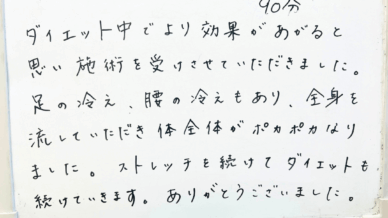 90分
ダイエット中でより効果があがると
思い施術を受けさせていただきました。
足の冷え、腰の冷えもあり、全身を
流していただき体全体がポカポカなり
ました。ストレッチを続けてダイエットも
続けていきます。ありがとうございました。